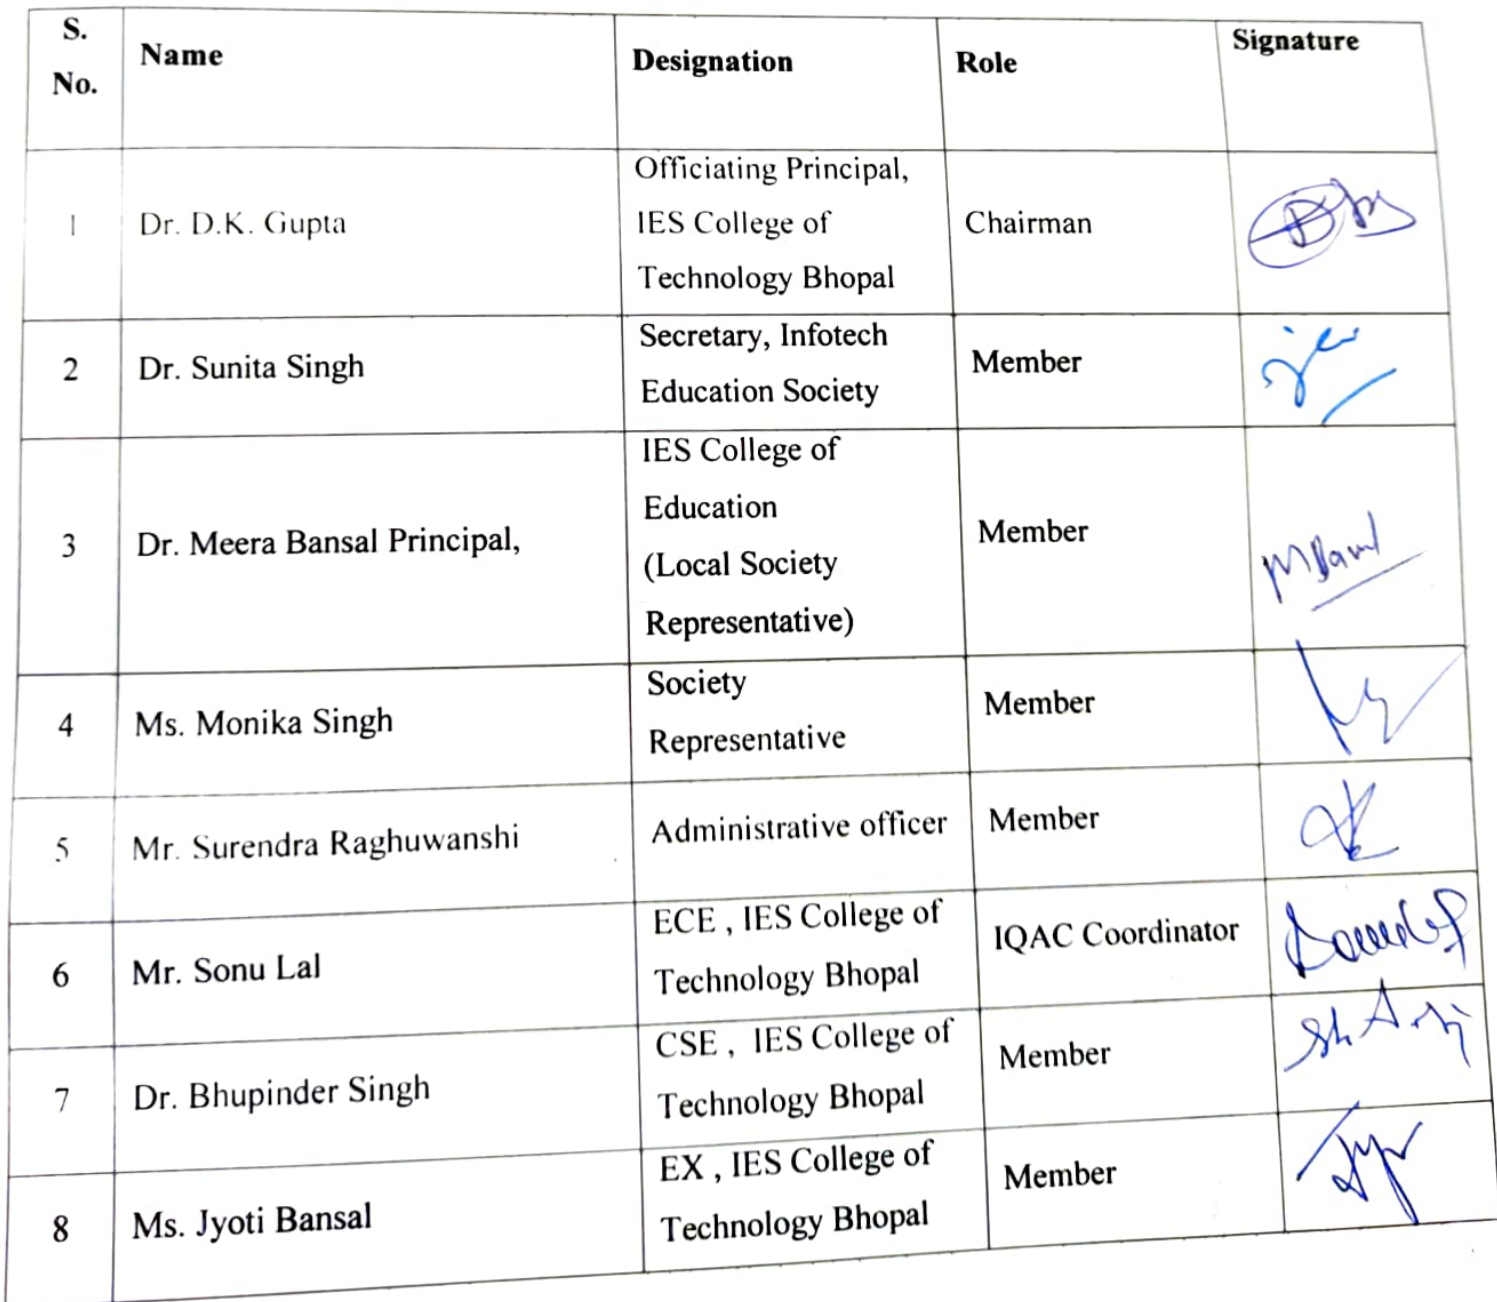 S.
No.
Name
Designation
Role
Signature
1
Dr. D.K. Gupta
Officiating Principal,
IES College of
Technology Bhopal
Chairman
2
Dr. Sunita Singh
Secretary, Infotech
Education Society
Member
3
Dr. Meera Bansal Principal,
IES College of
Education
(Local Society
Representative)
Member
4
Ms. Monika Singh
Society
Representative
Member
5
Mr. Surendra Raghuwanshi
Administrative officer
Member
6
Mr. Sonu Lal
ECE , IES College of
Technology Bhopal
IQAC Coordinator
7
Dr. Bhupinder Singh
CSE , IES College of
Technology Bhopal
Member
8
Ms. Jyoti Bansal
EX , IES College of
Technology Bhopal
Member